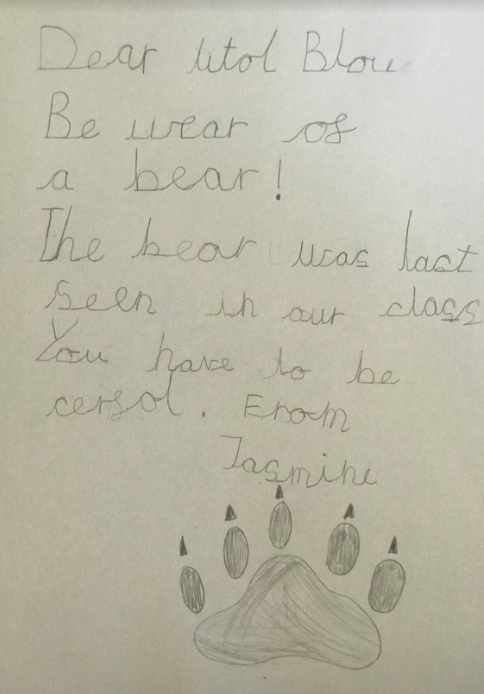 Dear litol Blou
Be wear of
a bear!
The bear was last
seen in our class
You have to be
cersol. From
Jasmine